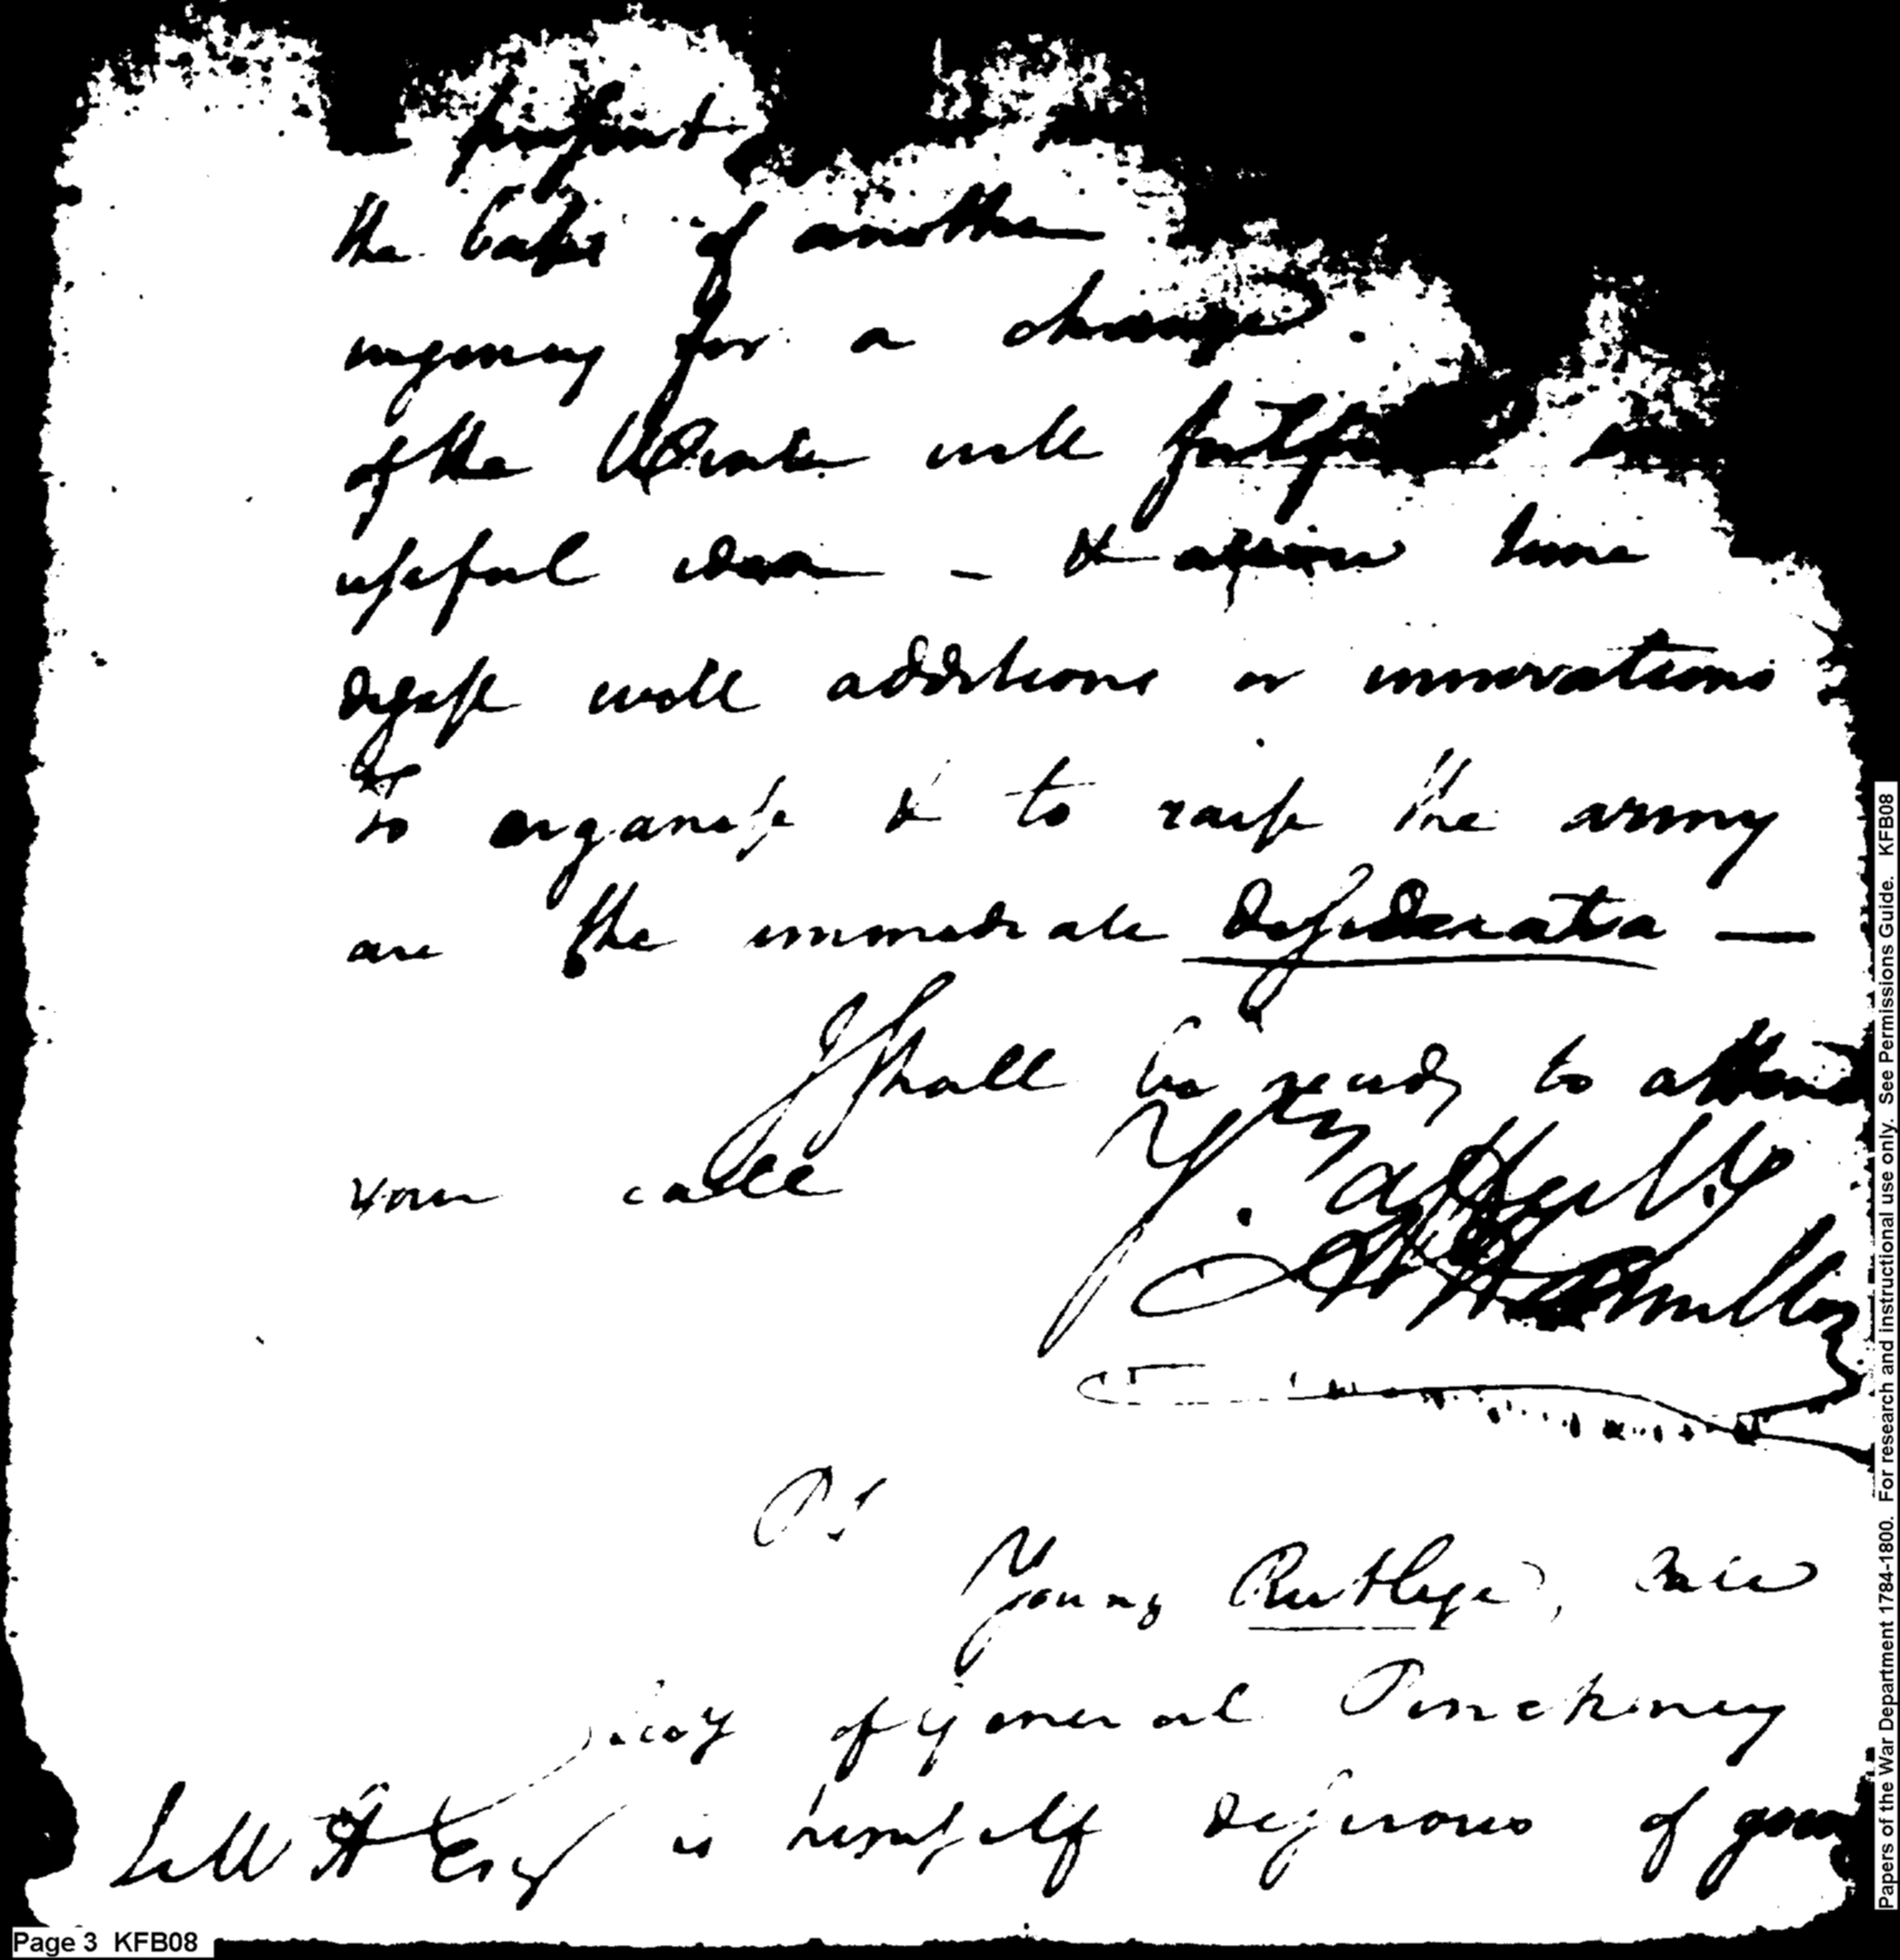 present
the basis of another
urgency for a change.
of the Winter will
useful ideas — & afford time
digest well additions or innovations
To organise & to raise the army
are the immediate desiderata —
I shall be ready to attend
your call
Yrs. Affectly
A Hamilton
Ps
Young Rutlege, Aide
of general Pinckney
is himself desirous of
Esq
Page 3 KFB08
Papers of the War Department 1784-1800. For research and instructional use only. See Permissions Guide. KFB08